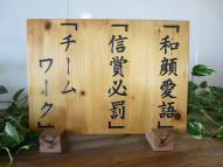 「和顔愛語」
「信賞必罰」
「チームワーク」